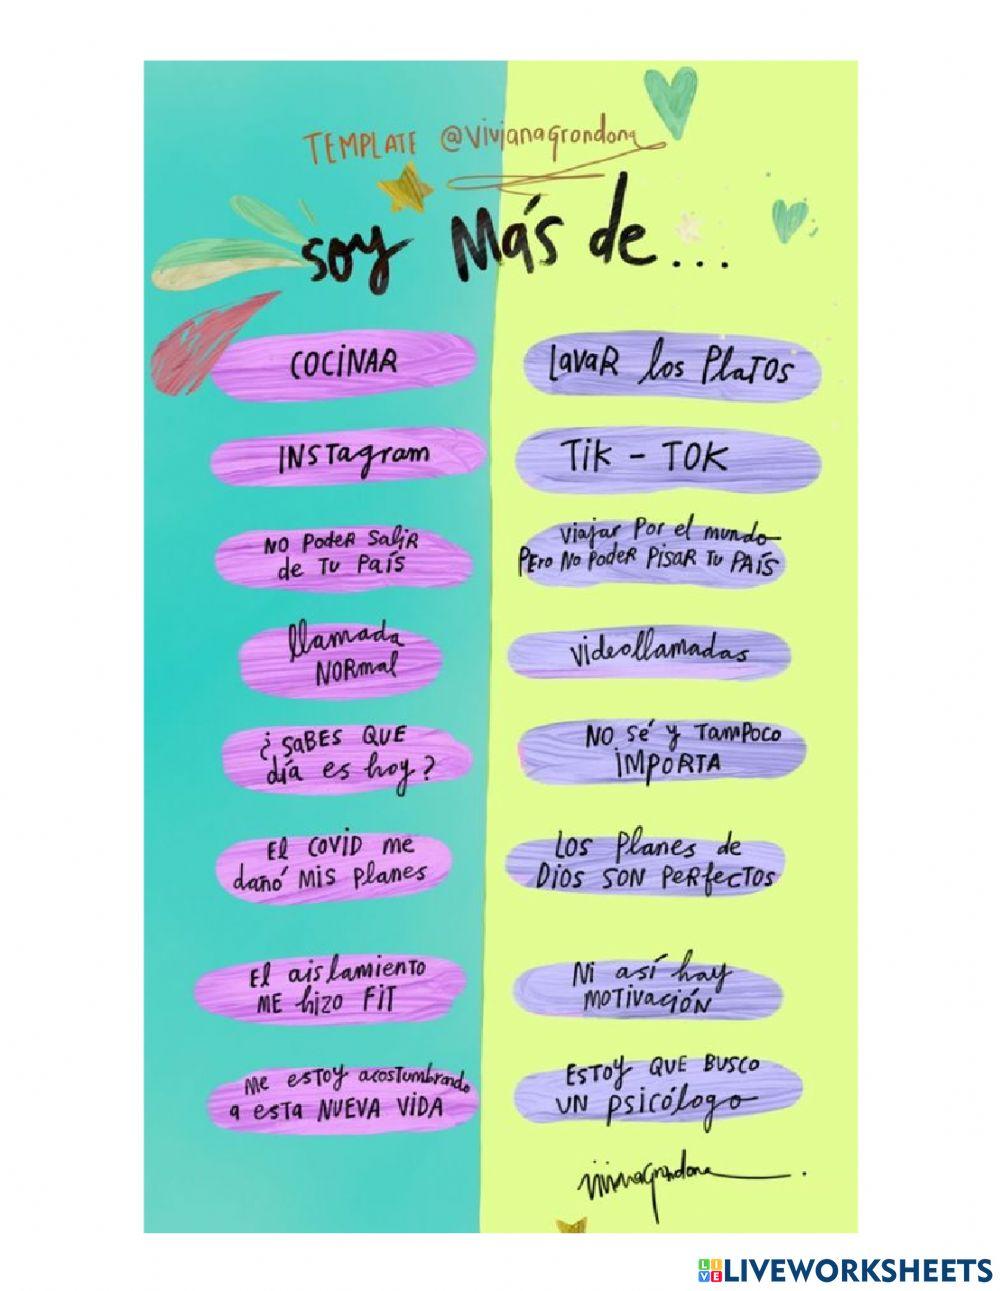 TEMPLATE @vivianagrondona
soy Más de...
COCINAR
LavaR los PlaTOS
INSTagram
TiK - TOK
NO PodeR SaliR
de Tu País
viajar Por el mundo
PEro No PodeR PISAR Tu PAÍS
llamada
NORmal
videollamadas
¿SaBES QUE
día es hoy?
NO Sé y TamPoco
iMPORTA
El COVID me
dañó MIS Planes
LOS Planes de
DIOS SON PeRfecTOS
El aislamiento
ME hizo FiT
Ni así hay
MOTIVACIÓN
Me esToy acostumbrando
a esta NUEVA VIDA
ESTOY QUE BUSCO
UN PSicólogo
vivianagrondona
LIVE
LIVEWORKSHEETS